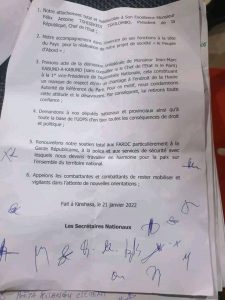 1. Notre attachement total et indéfectible à Son Excellence Monsieur
Félix Antoine TSHISEKEDI TSHILOMBO, Président de la
République, Chef de l'Etat ;
2. Notre accompagnement dans l'exercice de ses fonctions à la tête
du Pays pour la réalisation de notre projet de société « le Peuple
d'Abord » ;
3. Prenons acte de la démission de Monsieur Jean-Marc
KABUND-A-KABUND
à la 1ère Vice-Présidence de l'Assemblée Nationale, cela constituant
un manque de respect et un outrage à l'endroit de la Haute
Autorité de Référence du Parti. Pour ce motif, nous condamnons
cette attitude et le désavouons. Par conséquent, lui retirons toute
confiance ;
4. Demandons à nos députés nationaux et provinciaux ainsi qu'à
toute la base de l'UDPS d'en tirer toutes les conséquences de droit
et politique ;
5. Renouvelons notre soutien total aux FARDC particulièrement à la
Garde Républicaine, à la police et aux services de sécurité avec
lesquels nous devons travailler en harmonie pour la paix sur
l'ensemble du territoire national.
6. Appelons les combattantes et combattants de rester mobiliser et
vigilants dans l'attente de nouvelles orientations ;
Fait à Kinshasa, le 21 janvier 2022
Les Secrétaires Nationaux